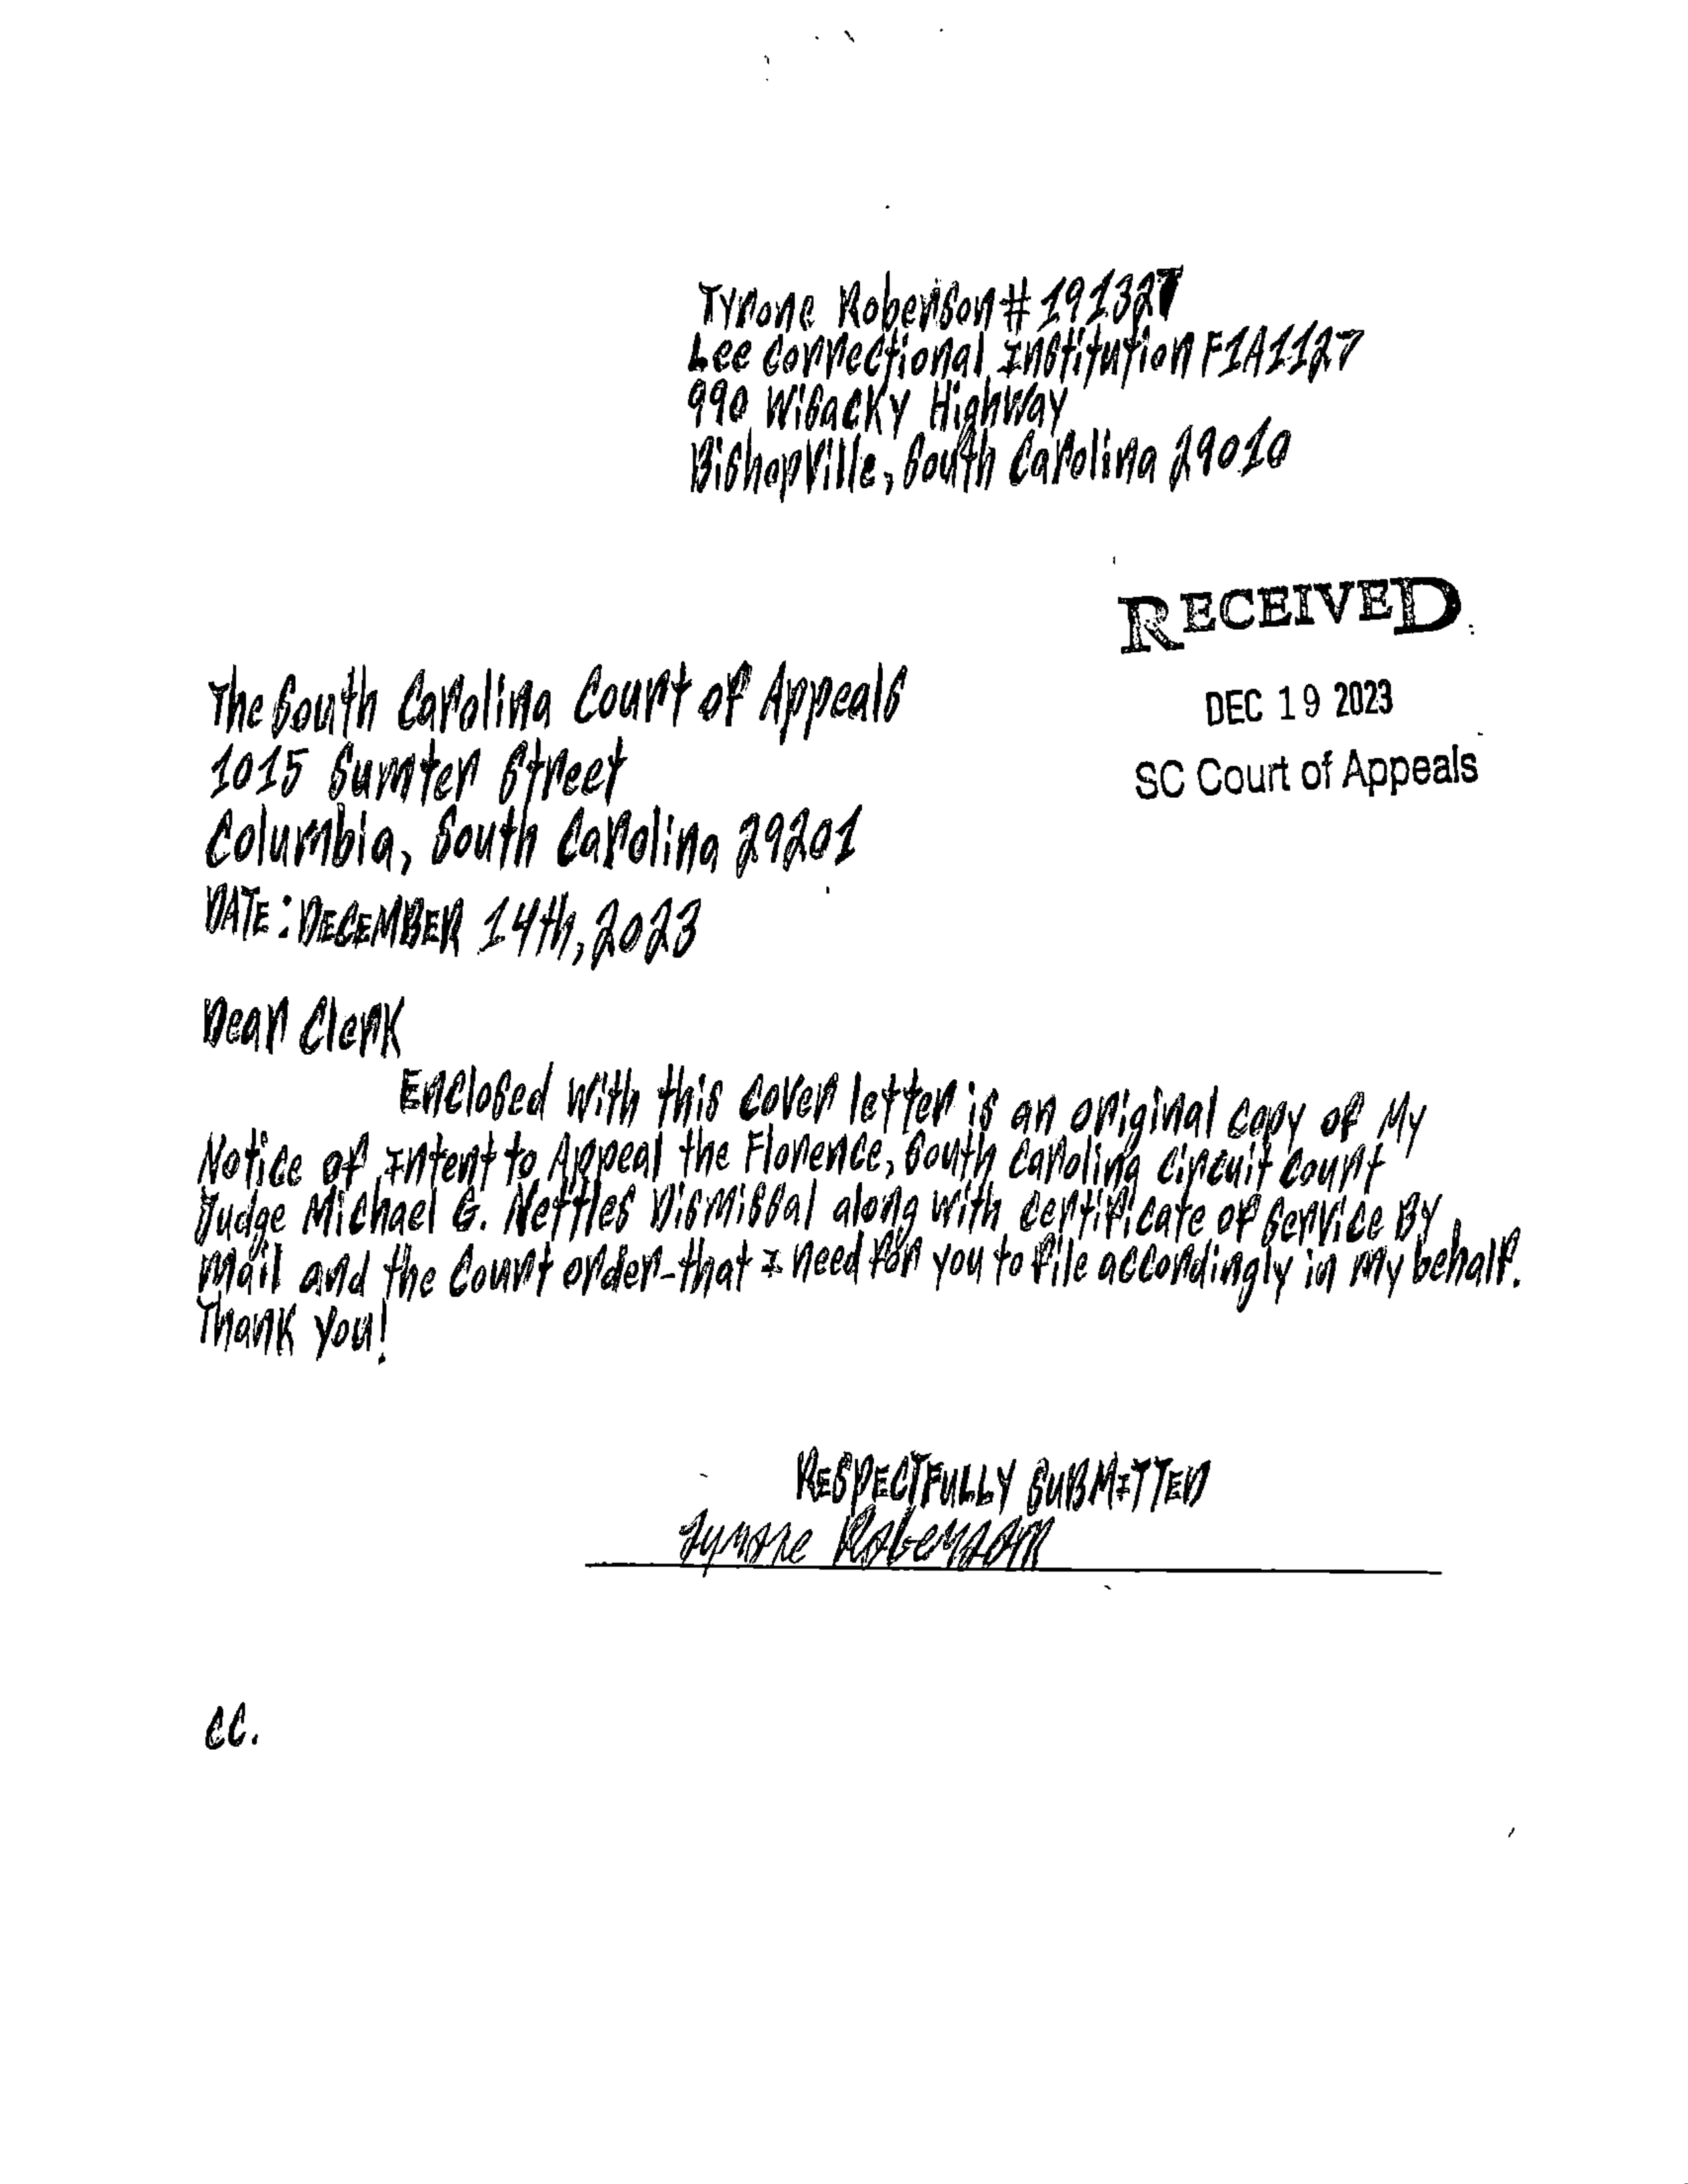 Tyrone Roberson # 191327
Lee Correctional Institution F1A1127
990 Wisacky Highway
Bishopville, South Carolina 29010
RECEIVED
DEC 19 2023
SC Court of Appeals
The South Carolina Court of Appeals
1015 Sumter Street
Columbia, South Carolina 29201
DATE: DECEMBER 14th, 2023
Dear Clerk
Enclosed with this cover letter is an original copy of My
Notice of Intent to Appeal the Florence, South Carolina Circuit Court
Judge Michael G. Nettles Dismissal along with certificate of service By
Mail and the Court order-that I need for you to file accordingly in my behalf.
Thank you!
RESPECTFULLY SUBMITTED
Tyrone Roberson
CC.